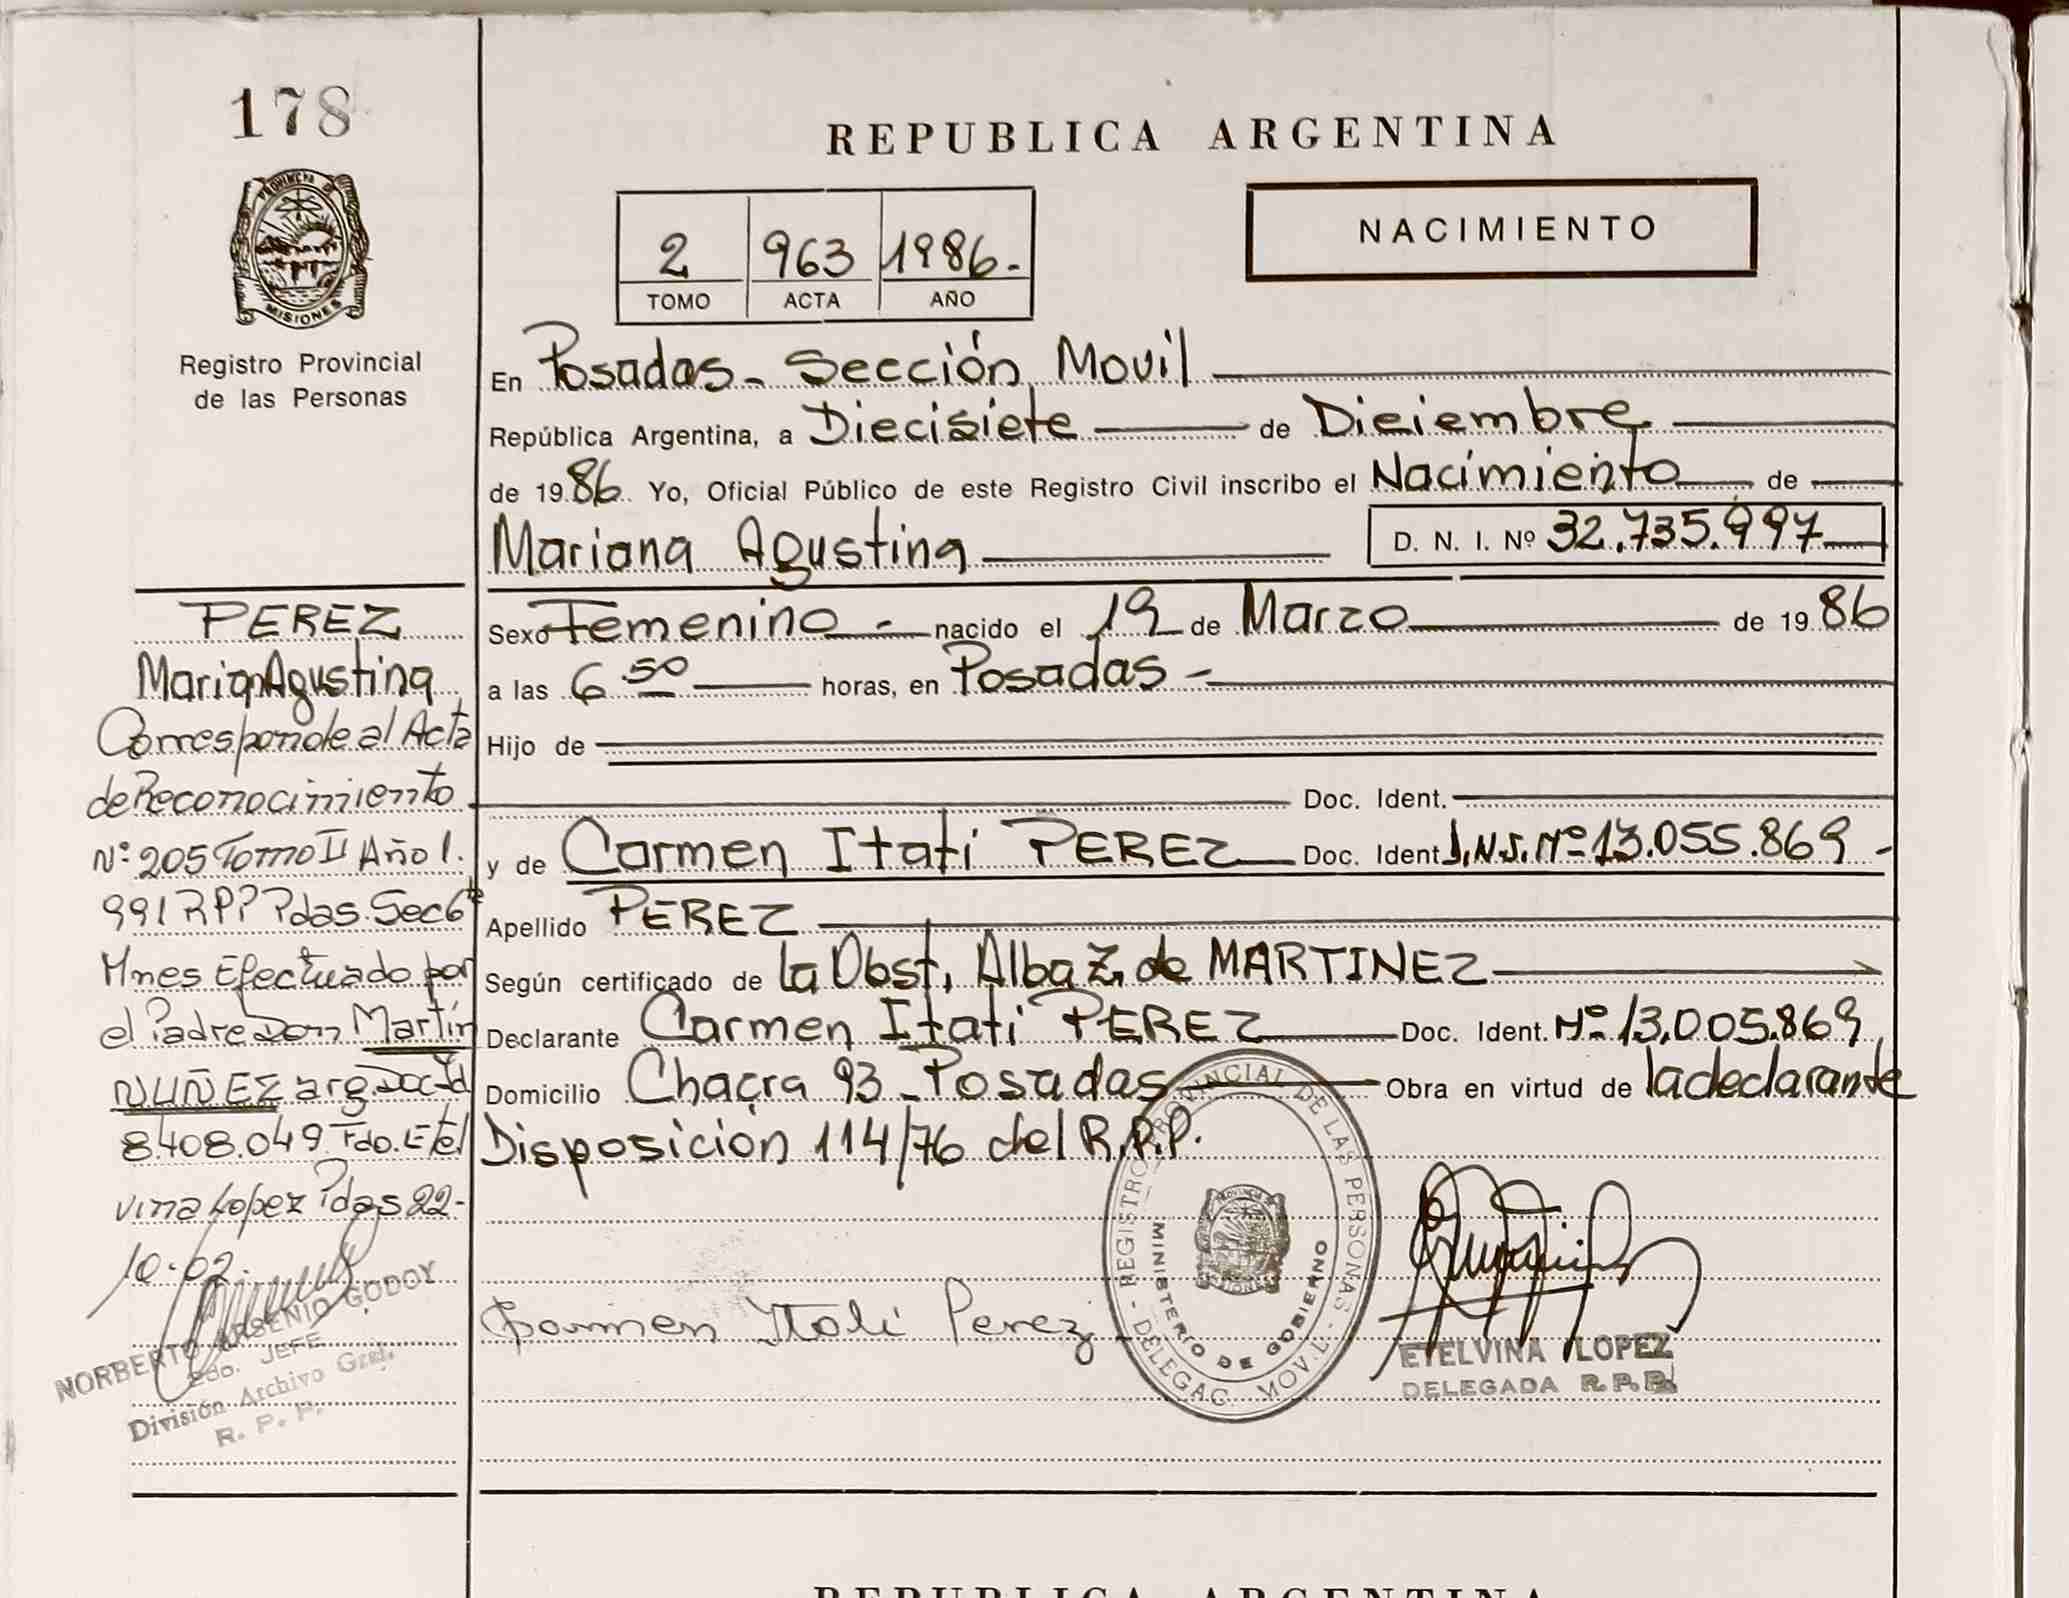 178
PROVINCIA D
MISIONES
Registro Provincial
de las Personas
REPUBLICA ARGENTINA
2 963 1986.-
TOMO ACTA AÑO
NACIMIENTO
En Posadas - Sección Movil
República Argentina, a Diecisiete de Dieiembre
de 1986. Yo, Oficial Público de este Registro Civil inscribo el Nacimiento de
Mariana Agustina D. N. I. Nº 32.735.997
Sexo Femenino - nacido el 19 de Marzo de 1986
a las 6 50 horas, en Posadas -
Hijo de
Doc. Ident.
y de Carmen Itati PEREZ Doc. Ident. Nº 13.055.869 -
Apellido PEREZ
Según certificado de la Obst, Alba Z, de MARTINEZ
Declarante Carmen Itati PEREZ Doc. Ident. Nº 13.005.869
Domicilio Chacra 93 - Posadas Obra en virtud de la declarante
Disposición 114/76 del R.R.P.
Carmen Itati Perez
REGISTRO PROVINCIAL DE LAS PERSONAS - DELEGAC. MOVIL -
MINISTERIO DE GOBIERNO
ETELVINA LOPEZ
DELEGADA R.P.P.
PEREZ
Marian Agustina
Corresponde al Acta
de Reconocimiento
Nº 205 Tomo II Año 1.
991 RPP Pdas. Sec 6ta
Mnes Efectuado por
el Padre Don Martín
NUÑEZ arg. Doc Id
8.408.049 Fdo. Etel
vina Lopez Pdas 22-
10-02.
NORBERTO ARSENIO GODOY
2do. JEFE
División Archivo Gral.
R. P. P.
REPUBLICA ARGENTINA